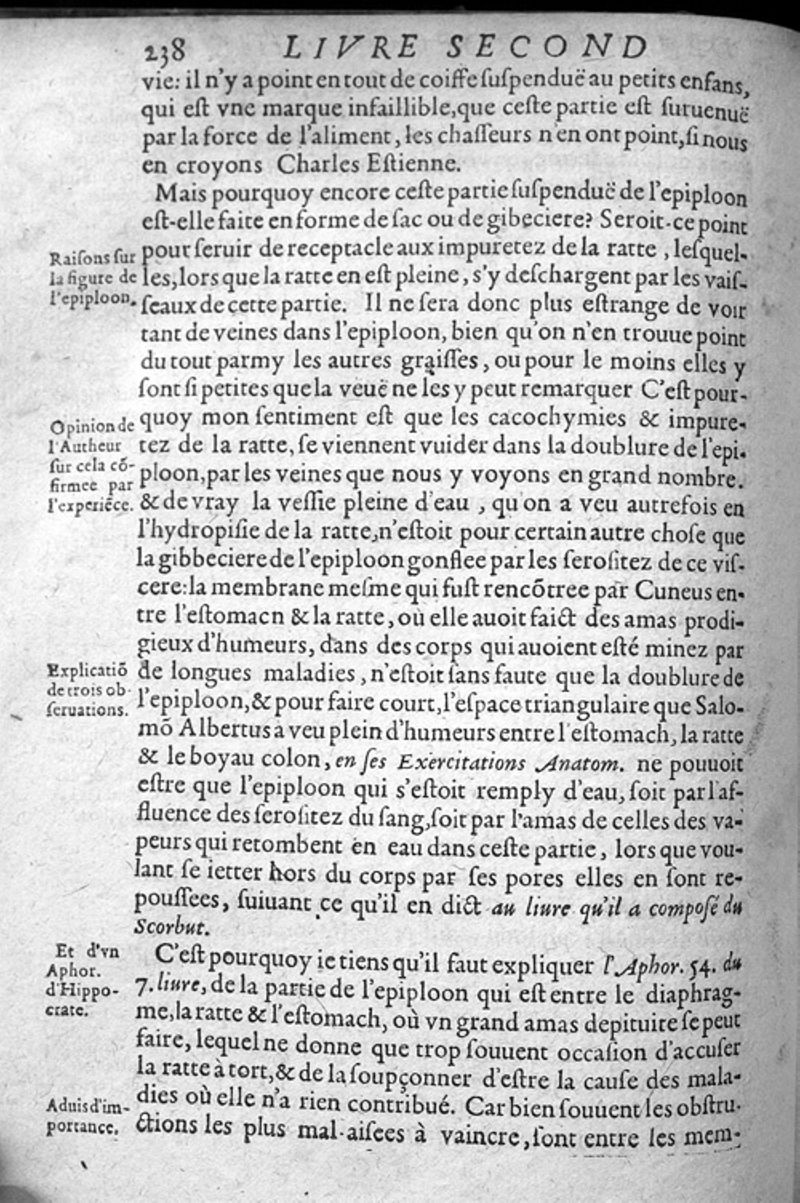 238 LIVRE SECOND
vie: il n'y a point en tout de coiffe ſuſpenduë au petits enfans,
qui eſt vne marque infaillible, que ceſte partie eſt ſuruenuë
par la force de l'aliment, les chaſſeurs n'en ont point, ſi nous
en croyons Charles Eſtienne.
Mais pourquoy encore ceſte partie ſuſpenduë de l'epiploon
eſt-elle faite en forme de ſac ou de gibeciere? Seroit-ce point
Raiſons ſur
la figure de
l'epiploon.
pour ſeruir de receptacle aux impuretez de la ratte, leſquel-
les, lors que la ratte en eſt pleine, s'y deſchargent par les vaiſ-
ſeaux de cette partie. Il ne ſera donc plus eſtrange de voir
tant de veines dans l'epiploon, bien qu'on n'en trouue point
du tout parmy les autres graiſſes, ou pour le moins elles y
ſont ſi petites que la veuë ne les y peut remarquer C'eſt pour-
Opinion de
l'Autheur
ſur cela cõ-
firmee par
l'experiẽce.
quoy mon ſentiment eſt que les cacochymies & impure-
tez de la ratte, ſe viennent vuider dans la doublure de l'epi-
ploon, par les veines que nous y voyons en grand nombre.
& de vray la veſſie pleine d'eau, qu'on a veu autrefois en
l'hydropiſie de la ratte, n'eſtoit pour certain autre choſe que
la gibbeciere de l'epiploon gonflee par les ſeroſitez de ce viſ-
cere: la membrane meſme qui fuſt rencõtree par Cuneus en-
tre l'eſtomacn & la ratte, où elle auoit faict des amas prodi-
gieux d'humeurs, dans des corps qui auoient eſté minez par
Explicatiõ
de trois ob-
ſeruations.
de longues maladies, n'eſtoit ſans faute que la doublure de
l'epiploon, & pour faire court, l'eſpace triangulaire que Salo-
mõ Albertus a veu plein d'humeurs entre l'eſtomach, la ratte
& le boyau colon, en ſes Exercitations Anatom. ne pouuoit
eſtre que l'epiploon qui s'eſtoit remply d'eau, ſoit par l'af-
fluence des ſeroſitez du ſang, ſoit par l'amas de celles des va-
peurs qui retombent en eau dans ceſte partie, lors que vou-
lant ſe ietter hors du corps par ſes pores elles en ſont re-
pouſſees, ſuiuant ce qu'il en dict au liure qu'il a compoſé du
Scorbut.
Et d'vn
Aphor.
d'Hippo-
crate.
C'eſt pourquoy ie tiens qu'il faut expliquer l'Aphor. 54. du
7. liure, de la partie de l'epiploon qui eſt entre le diaphrag-
me, la ratte & l'eſtomach, où vn grand amas de pituite ſe peut
faire, lequel ne donne que trop ſouuent occaſion d'accuſer
la ratte à tort, & de la ſoupçonner d'eſtre la cauſe des mala-
Aduis d'im-
portance.
dies où elle n'a rien contribué. Car bien ſouuent les obſtru-
ctions les plus mal-aiſees à vaincre, ſont entre les mem-